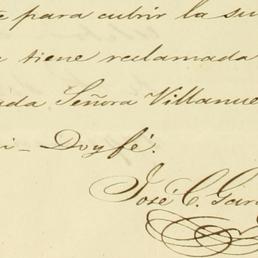 te para cubrir la su
e tiene reclamada
ida Señora Villanue
i - Doy fé.
José C. Gar